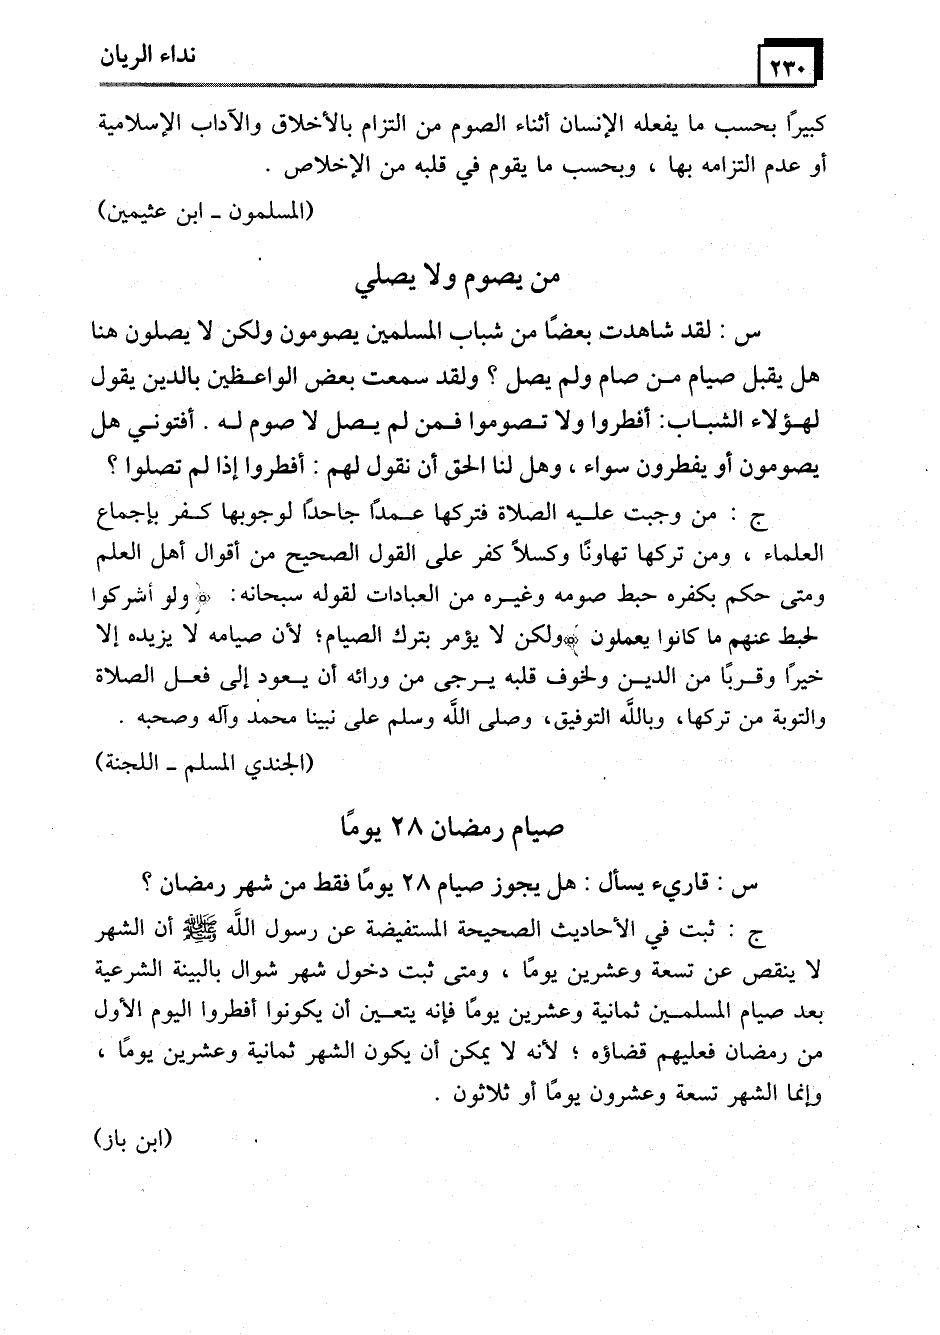 ٢٣٠
نداء الريان
كبيرًا بحسب ما يفعله الإنسان أثناء الصوم من التزام بالأخلاق والآداب الإسلامية
أو عدم التزامه بها ، وبحسب ما يقوم في قلبه من الإخلاص .
(المسلمون ـ ابن عثيمين)
من يصوم ولا يصلي
س : لقد شاهدت بعضًا من شباب المسلمين يصومون ولكن لا يصلون هنا
هل يقبل صيام من صام ولم يصل ؟ ولقد سمعت بعض الواعظين بالدين يقول
لهؤلاء الشباب: أفطروا ولا تصوموا فمن لم يصل لا صوم له . أفتوني هل
يصومون أو يفطرون سواء ، وهل لنا الحق أن نقول لهم : أفطروا إذا لم تصلوا ؟
ج : من وجبت عليه الصلاة فتركها عمدًا جاحدًا لوجوبها كفر بإجماع
العلماء ، ومن تركها تهاونًا وكسلاً كفر على القول الصحيح من أقوال أهل العلم
ومتى حكم بكفره حبط صومه وغيره من العبادات لقوله سبحانه: ﴿ ولو أشركوا
لحبط عنهم ما كانوا يعملون ﴾ولكن لا يؤمر بترك الصيام؛ لأن صيامه لا يزيده إلا
خيرًا وقربًا من الدين ولخوف قلبه يرجى من ورائه أن يعود إلى فعل الصلاة
والتوبة من تركها، وباللَّه التوفيق، وصلى اللَّه وسلم على نبينا محمد وآله وصحبه .
(الجندي المسلم ـ اللجنة)
صيام رمضان ٢٨ يومًا
س : قاريء يسأل : هل يجوز صيام ٢٨ يومًا فقط من شهر رمضان ؟
ج : ثبت في الأحاديث الصحيحة المستفيضة عن رسول اللَّه ﷺ أن الشهر
لا ينقص عن تسعة وعشرين يومًا ، ومتى ثبت دخول شهر شوال بالبينة الشرعية
بعد صيام المسلمين ثمانية وعشرين يومًا فإنه يتعين أن يكونوا أفطروا اليوم الأول
من رمضان فعليهم قضاؤه ؛ لأنه لا يمكن أن يكون الشهر ثمانية وعشرين يومًا ،
وإنما الشهر تسعة وعشرون يومًا أو ثلاثون .
(ابن باز)